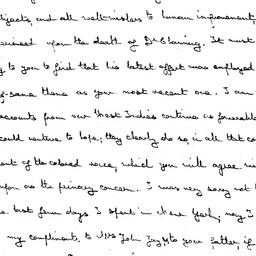 objects, and all well-wishers to human improvement,
upon the death of Dr Channing. It must
g to you to find that his latest effort was employed
same theme as your most recent one. I am
accounts from our West Indies continue as favorable
could venture to hope; they clearly do so, in all that con
ent of the colored race, which you will agree
upon as the primary concern. I was very sorry not
e last few days I spent in New York; may I
my compliments to Mrs John Jay, & to your father, if